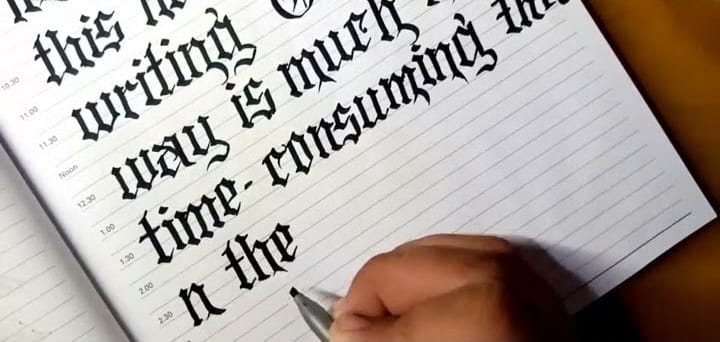 this
10.30
writing
11.00
11.30
way is much
Noon
12.30
time-consuming
1.00
1.30
n the
2.00
2.30